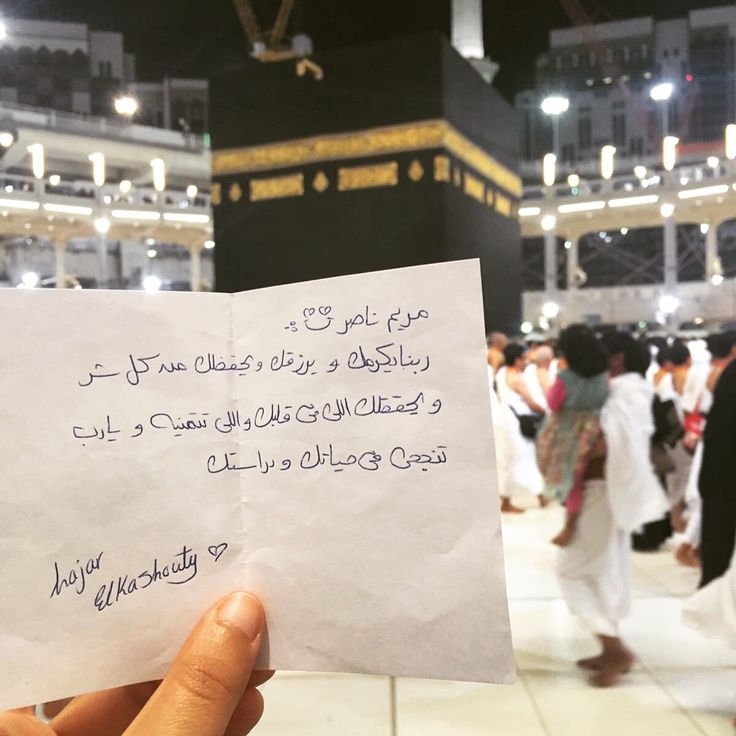 مريم ناصر
ربنا يكرمك و يرزقك و يحفظك من كل شر
و يحققلك اللي في قلبك واللي تتمنيه و يارب
تنجحي في حياتك و دراستك
hajar
ElKashouty ♡